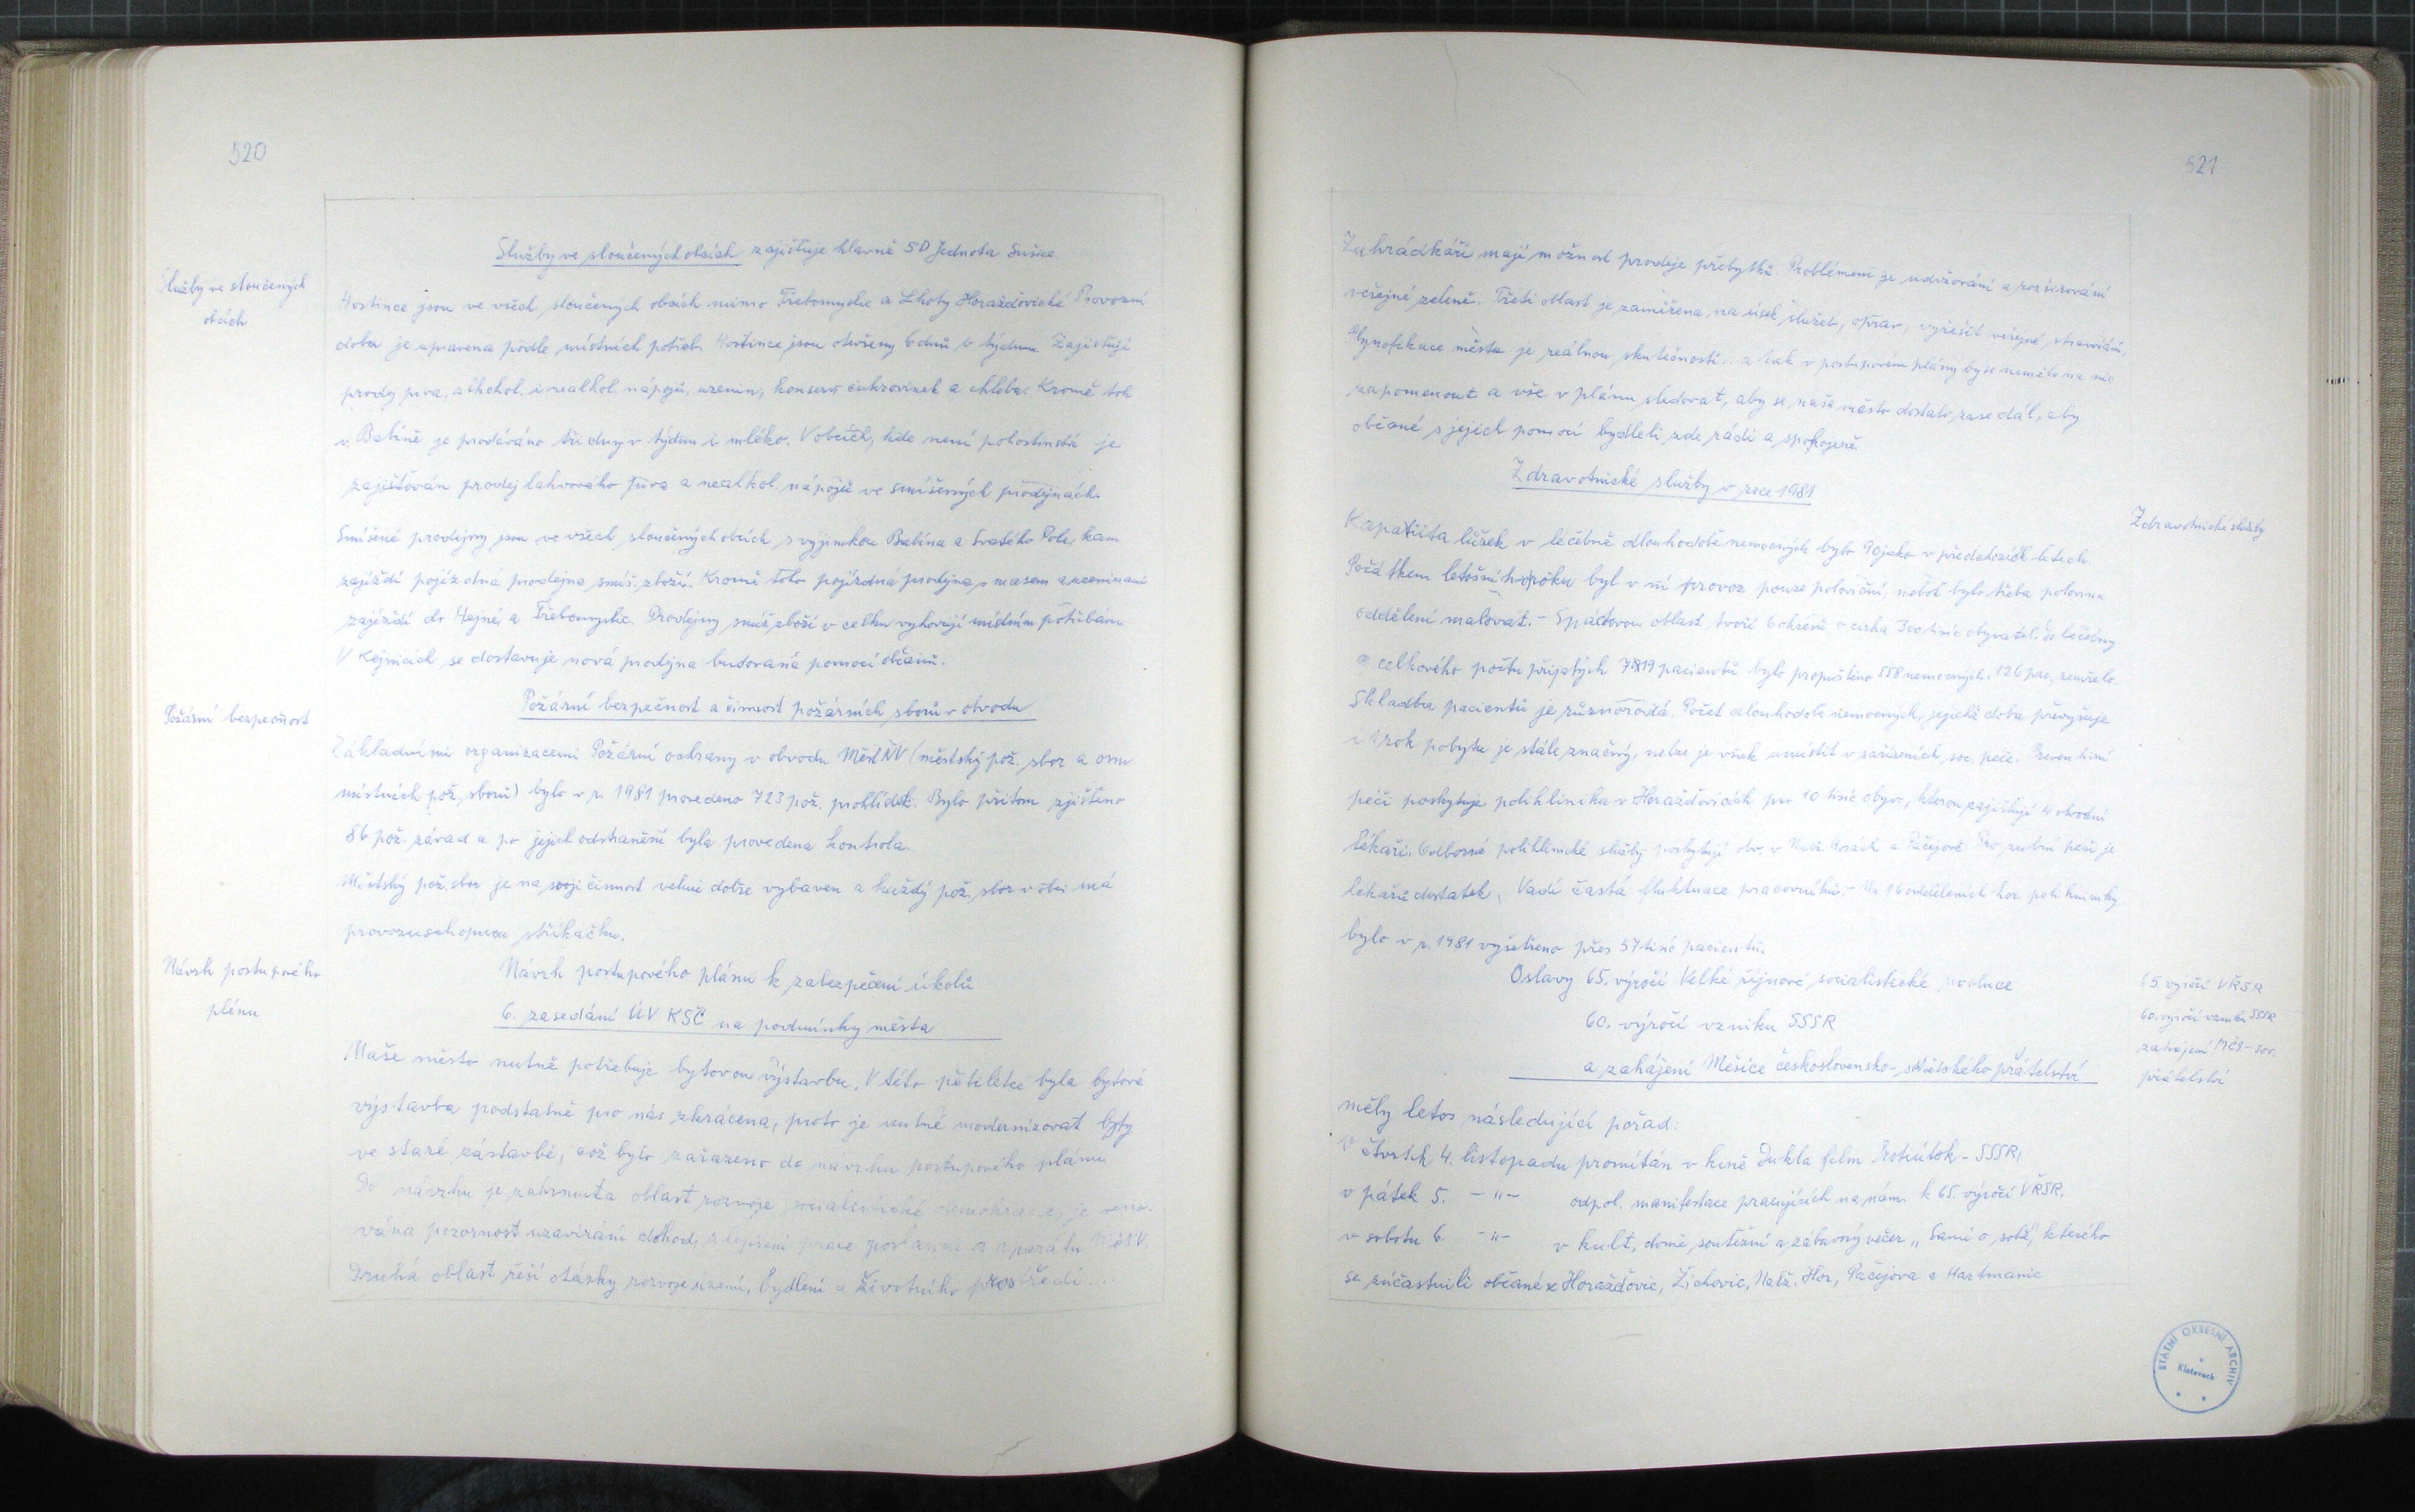 520
Služby ve sloučených obcích zajišťuje hlavně SD Jednota Sušice
Služby ve sloučených
obcích
Hostince jsou ve všech sloučených obcích mimo Třebomyslic a Lhoty Horažďovické Provozní
doba je upravena podle místních potřeb. Hostince jsou otevřeny 6 dnů v týdnu. Zajišťují
prodej piva, alkohol. i nealkol. nápojů, uzenin, konserv cukrovinek a chleba. Kromě toh
v Babíně je prodáváno tři dny v týdnu i mléko. V obcích, kde není pohostinství je
zajišťován prodej lahvového piva a nealkol. nápojů ve smíšených prodejnách.
Smíšené prodejny jsou ve všech sloučených obcích s vyjímkou Babína a Svatého Pole, kam
zajíždí pojízdná prodejna smíš. zboží. Kromě toho pojízdná prodejna s masem a uzeninami
zajíždí do Hejné a Třebomyslic. Prodejny smíš. zboží v celku vyhovují místním potřebám
V Kejnicích se dostavuje nová prodejna budovaná pomocí občanů.
Požární bezpečnost a činnost požárních sborů v obvodu
Požární bezpečnost
Základními organizacemi Požární ochrany v obvodu MěstNV (městský pož. sbor a osm
místních pož. sborů) bylo v r. 1981 provedeno 723 pož. prohlídek. Bylo přitom zjištěno
86 pož. závad a po jejich odstranění byla provedena kontrola.
Městský pož. sbor je na svoji činnost velmi dobře vybaven a každý pož. sbor v obci má
provozuschopnou stříkačku.
Návrh postupového
plénu
Návrh postupového plánu k zabezpečení úkolů
6. zasedání ÚV KSČ na podmínky města
Naše město nutně potřebuje bytovou výstavbu. V této pětiletce byla bytová
výstavba podstatně pro nás zkrácena, proto je nutné modernizovat byty
ve staré zástavbě, což bylo zařazeno do návrhu postupového plánu
Do návrhu je zahrnuta oblast rozvoje socialistické demokracie, je věno-
vána pozornost uzavírání dohod, zlepšení práce poslanců a aparátu MěNV.
Druhá oblast řeší otázky rozvoje území, bydlení a životního prostředí...
521
Zahrádkáři mají možnost prodeje přebytků. Problémem je udržování a rozšiřování
veřejné zeleně. Třetí oblast je zaměřena na úsek služeb, oprav, vyřešit veřejné stravování,
Plynofikace města je reálnou skutečností.. a tak v postupovém plánu by se nemělo na nic
zapomenout a vše v plánu sledovat, aby se naše město dostalo zase dál, aby
občané s jejich pomocí bydleli zde rádi a spokojeně.
Zdravotnické služby v roce 1981
Zdravotnické služby
Kapacita lůžek v léčebně dlouhodobě nemocných bylo 90 jako v předchozích letech.
Počátkem letošního roku byl v ní provoz pouze poloviční, neboť bylo třeba polovinu
oddělení malovat. - Spádovou oblast tvoří 6 okresů o cirka 300 tisíc obyvatel. Do léčebny
z celkového počtu přijatých 719 pacientů bylo propuštěno 558 nemocných, 126 pac. zemřelo.
Skladba pacientů je různorodá. Počet dlouhodobě nemocných, jejichž doba převyšuje
i 1 rok pobytu je stále značný, nelze je však umístit v zařízeních soc. péče. Preventivní
péči poskytuje poliklinika v Horažďovicích pro 10 tisíc obyv., kterou zajišťují 4 obvodní
lékaři. Odborné poliklinické služby poskytují obv. v Nal. Horách a Pačejově. Pro zubní péči je
lékařů dostatek. Vadí častá fluktuace pracovníků. - Na 16 odděleních hor. polikliniky
bylo v r. 1981 vyšetřeno přes 57 tisíc pacientů.
Oslavy 65. výročí Velké říjnové socialistické revoluce
60. výročí vzniku SSSR
a zahájení Měsíce československo-sovětského přátelství
65. výročí VŘSR
60. výročí vzniku SSSR
zahájení MČS-sov.
přátelství
měly letos následující pořad:
V čtvrtek 4. listopadu promítán v kině Dukla film Protiútok - SSSR,
v pátek 5. - " - odpol. manifestace pracujících na nám. k 65. výročí VŘSR.
v sobotu 6. - " - v kult. domě soutěžní a zábavný večer „Sami o sobě", kterého
se zúčastnili občané z Horažďovic, Žichovic, Nalž. Hor, Pačejova a Hartmanic
STÁTNÍ OKRESNÍ ARCHIV
Klatovech